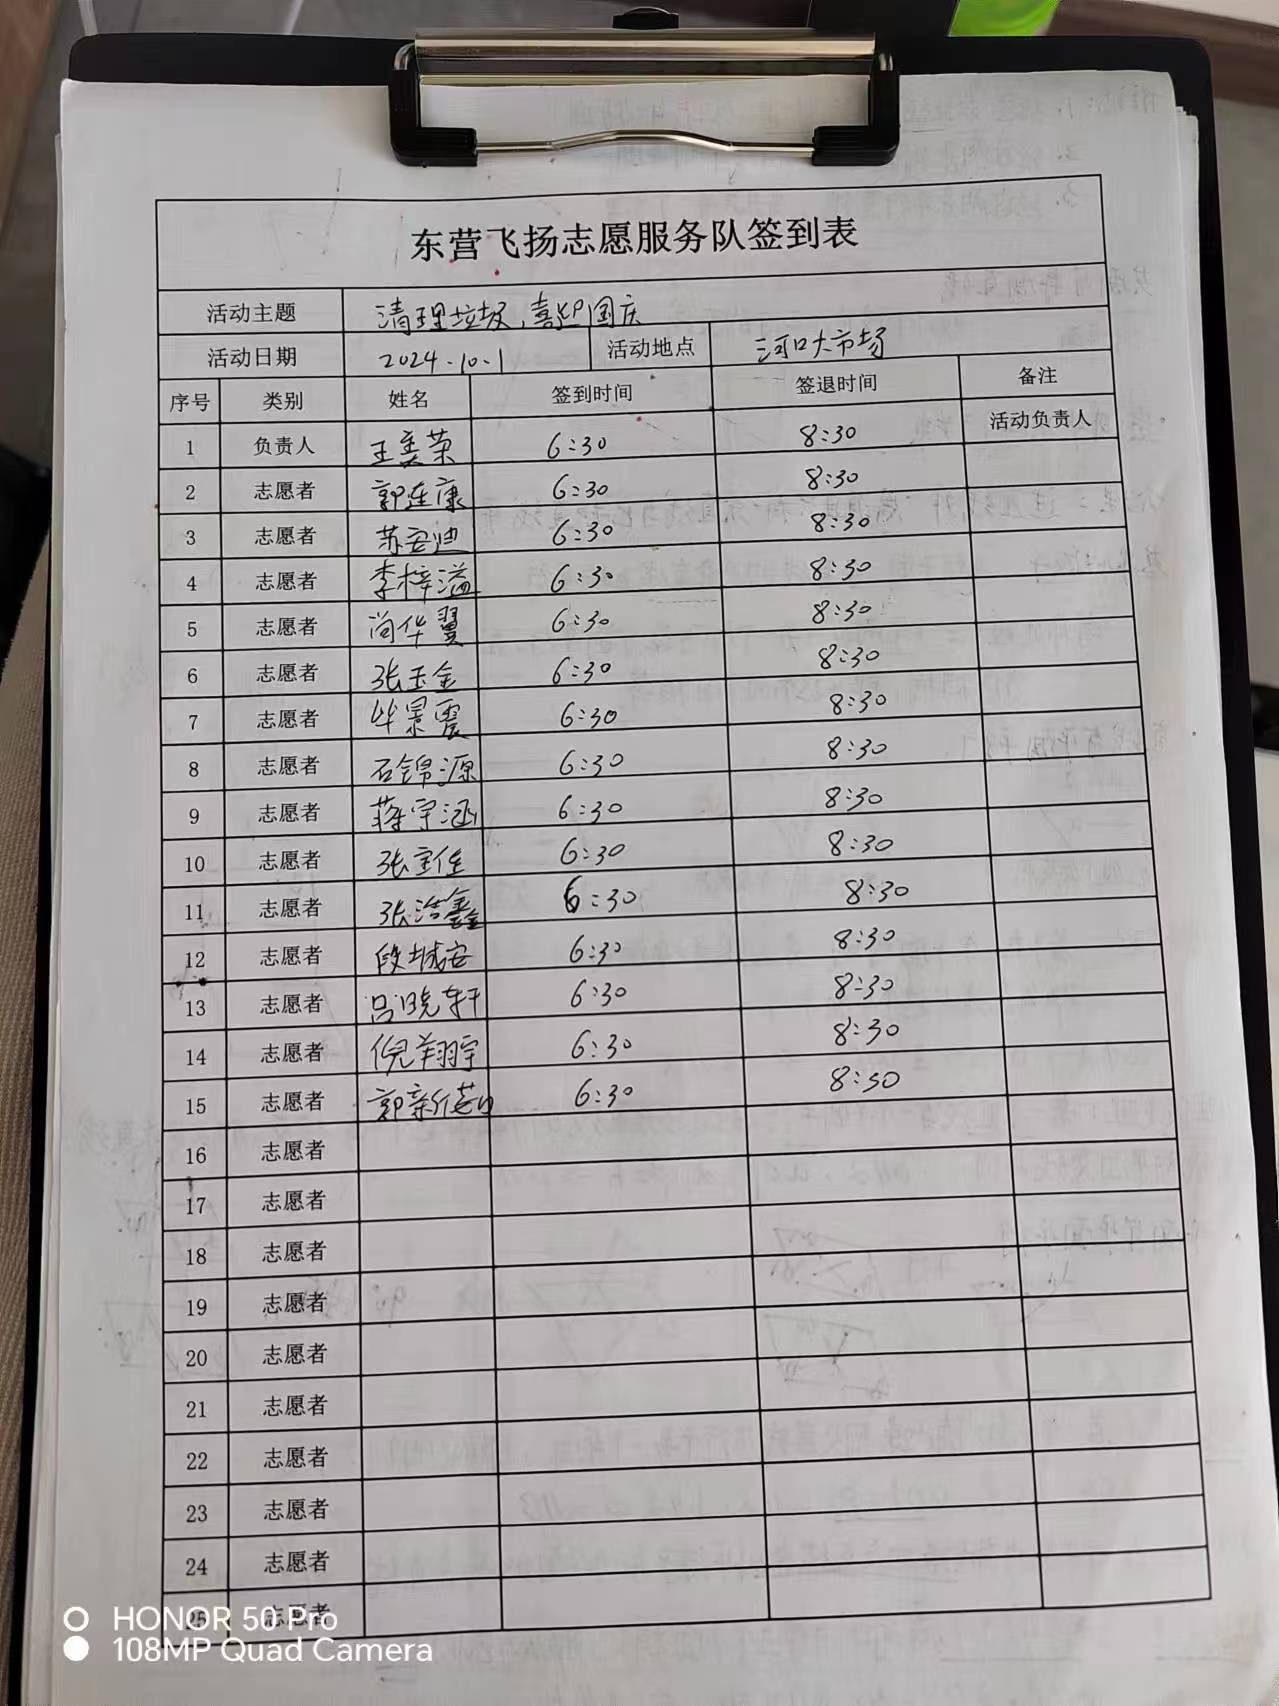 东营飞扬志愿服务队签到表
活动主题 清理垃圾,喜迎国庆
活动日期 2024.10.1 活动地点 河口大市场
序号 类别 姓名 签到时间 签退时间 备注
1 负责人 王美荣 6:30 8:30 活动负责人
2 志愿者 郭连康 6:30 8:30
3 志愿者 苏安迪 6:30 8:30
4 志愿者 李梓溢 6:30 8:30
5 志愿者 尚华翼 6:30 8:30
6 志愿者 张玉金 6:30 8:30
7 志愿者 毕景震 6:30 8:30
8 志愿者 石锦源 6:30 8:30
9 志愿者 蒋宇涵 6:30 8:30
10 志愿者 张宝佳 6:30 8:30
11 志愿者 张浩鑫 6:30 8:30
12 志愿者 段城安 6:30 8:30
13 志愿者 吕晓轩 6:30 8:30
14 志愿者 倪翔宇 6:30 8:30
15 志愿者 郭新茹 6:30 8:30
16 志愿者
17 志愿者
18 志愿者
19 志愿者
20 志愿者
21 志愿者
22 志愿者
23 志愿者
24 志愿者
25 志愿者
HONOR 50 Pro
108MP Quad Camera